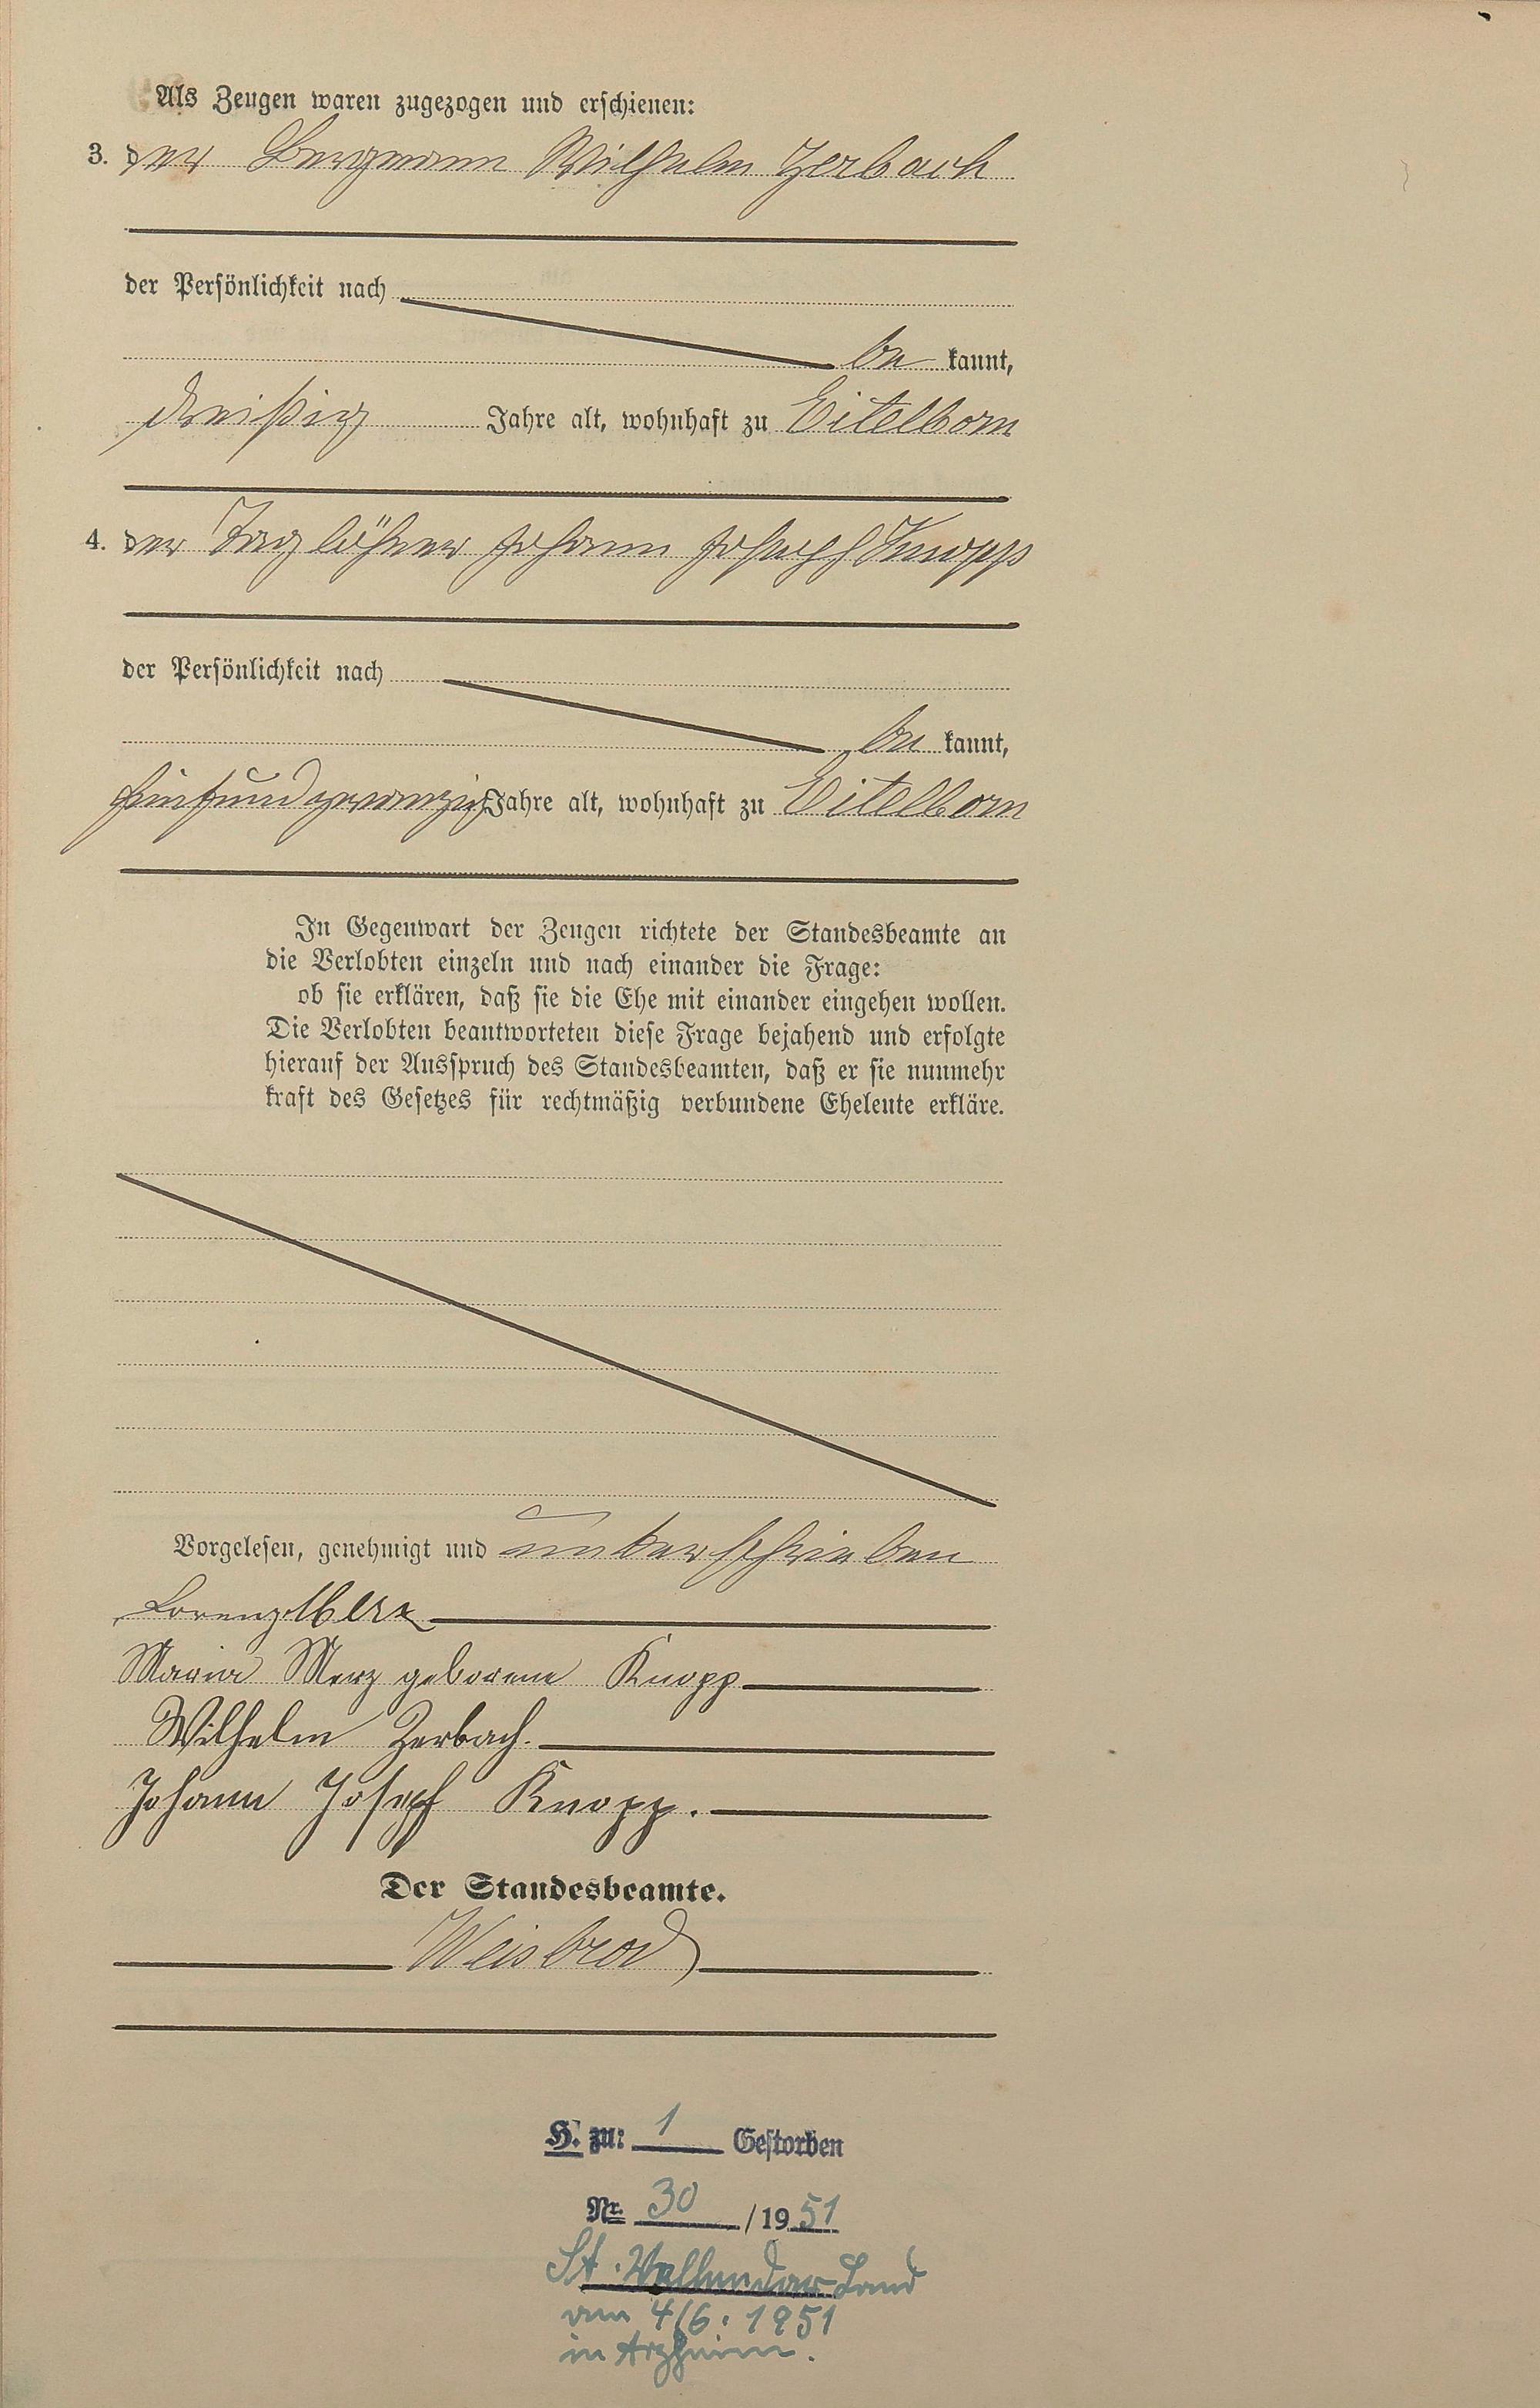 Als Zeugen waren zugezogen und erschienen:
3. der Bergmann Wilhelm Zerbach
der Persönlichkeit nach
be kannt,
dreißig Jahre alt, wohnhaft zu Eitelborn
4. der Taglöhner Johann Joseph Knopp
der Persönlichkeit nach
be kannt,
fünfundzwanzig Jahre alt, wohnhaft zu Eitelborn
In Gegenwart der Zeugen richtete der Standesbeamte an
die Verlobten einzeln und nach einander die Frage:
ob sie erklären, daß sie die Ehe mit einander eingehen wollen.
Die Verlobten beantworteten diese Frage bejahend und erfolgte
hierauf der Ausspruch des Standesbeamten, daß er sie nunmehr
kraft des Gesetzes für rechtmäßig verbundene Eheleute erkläre.
Vorgelesen, genehmigt und unterschrieben
Lorenz Merz
Maria Merz geborene Knopp
Wilhelm Zerbach.
Johann Joseph Knopp.
Der Standesbeamte.
Weisbrod
H. zu: 1 Gestorben
Nr. 30 /1951
St. Vallendar Land
am 4/6. 1951
in Arzheim.